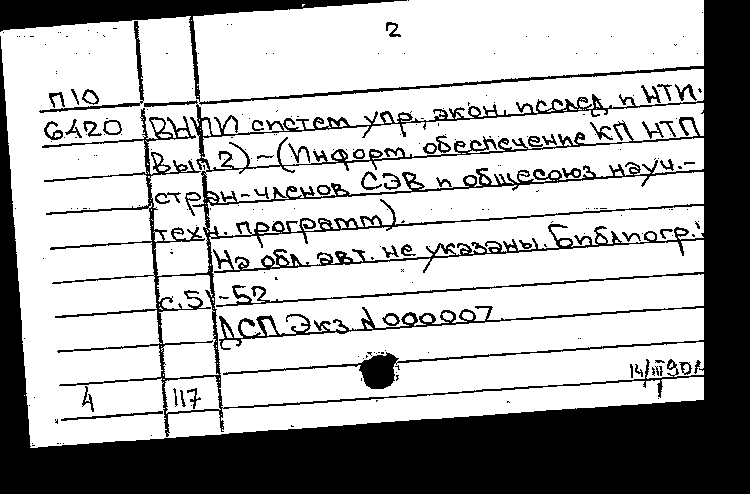 2
П10
6420 ВНИИ систем упр., экон. исслед. и НТИ;
Вып. 2) - (Информ. обеспечение КП НТП
стран-членов СЭВ и общесоюз науч.-
техн. программ).
На обл. авт. не указаны. Библиогр.:
с. 51-52.
ДСП. Экз N000007
4 117 14/III 90г